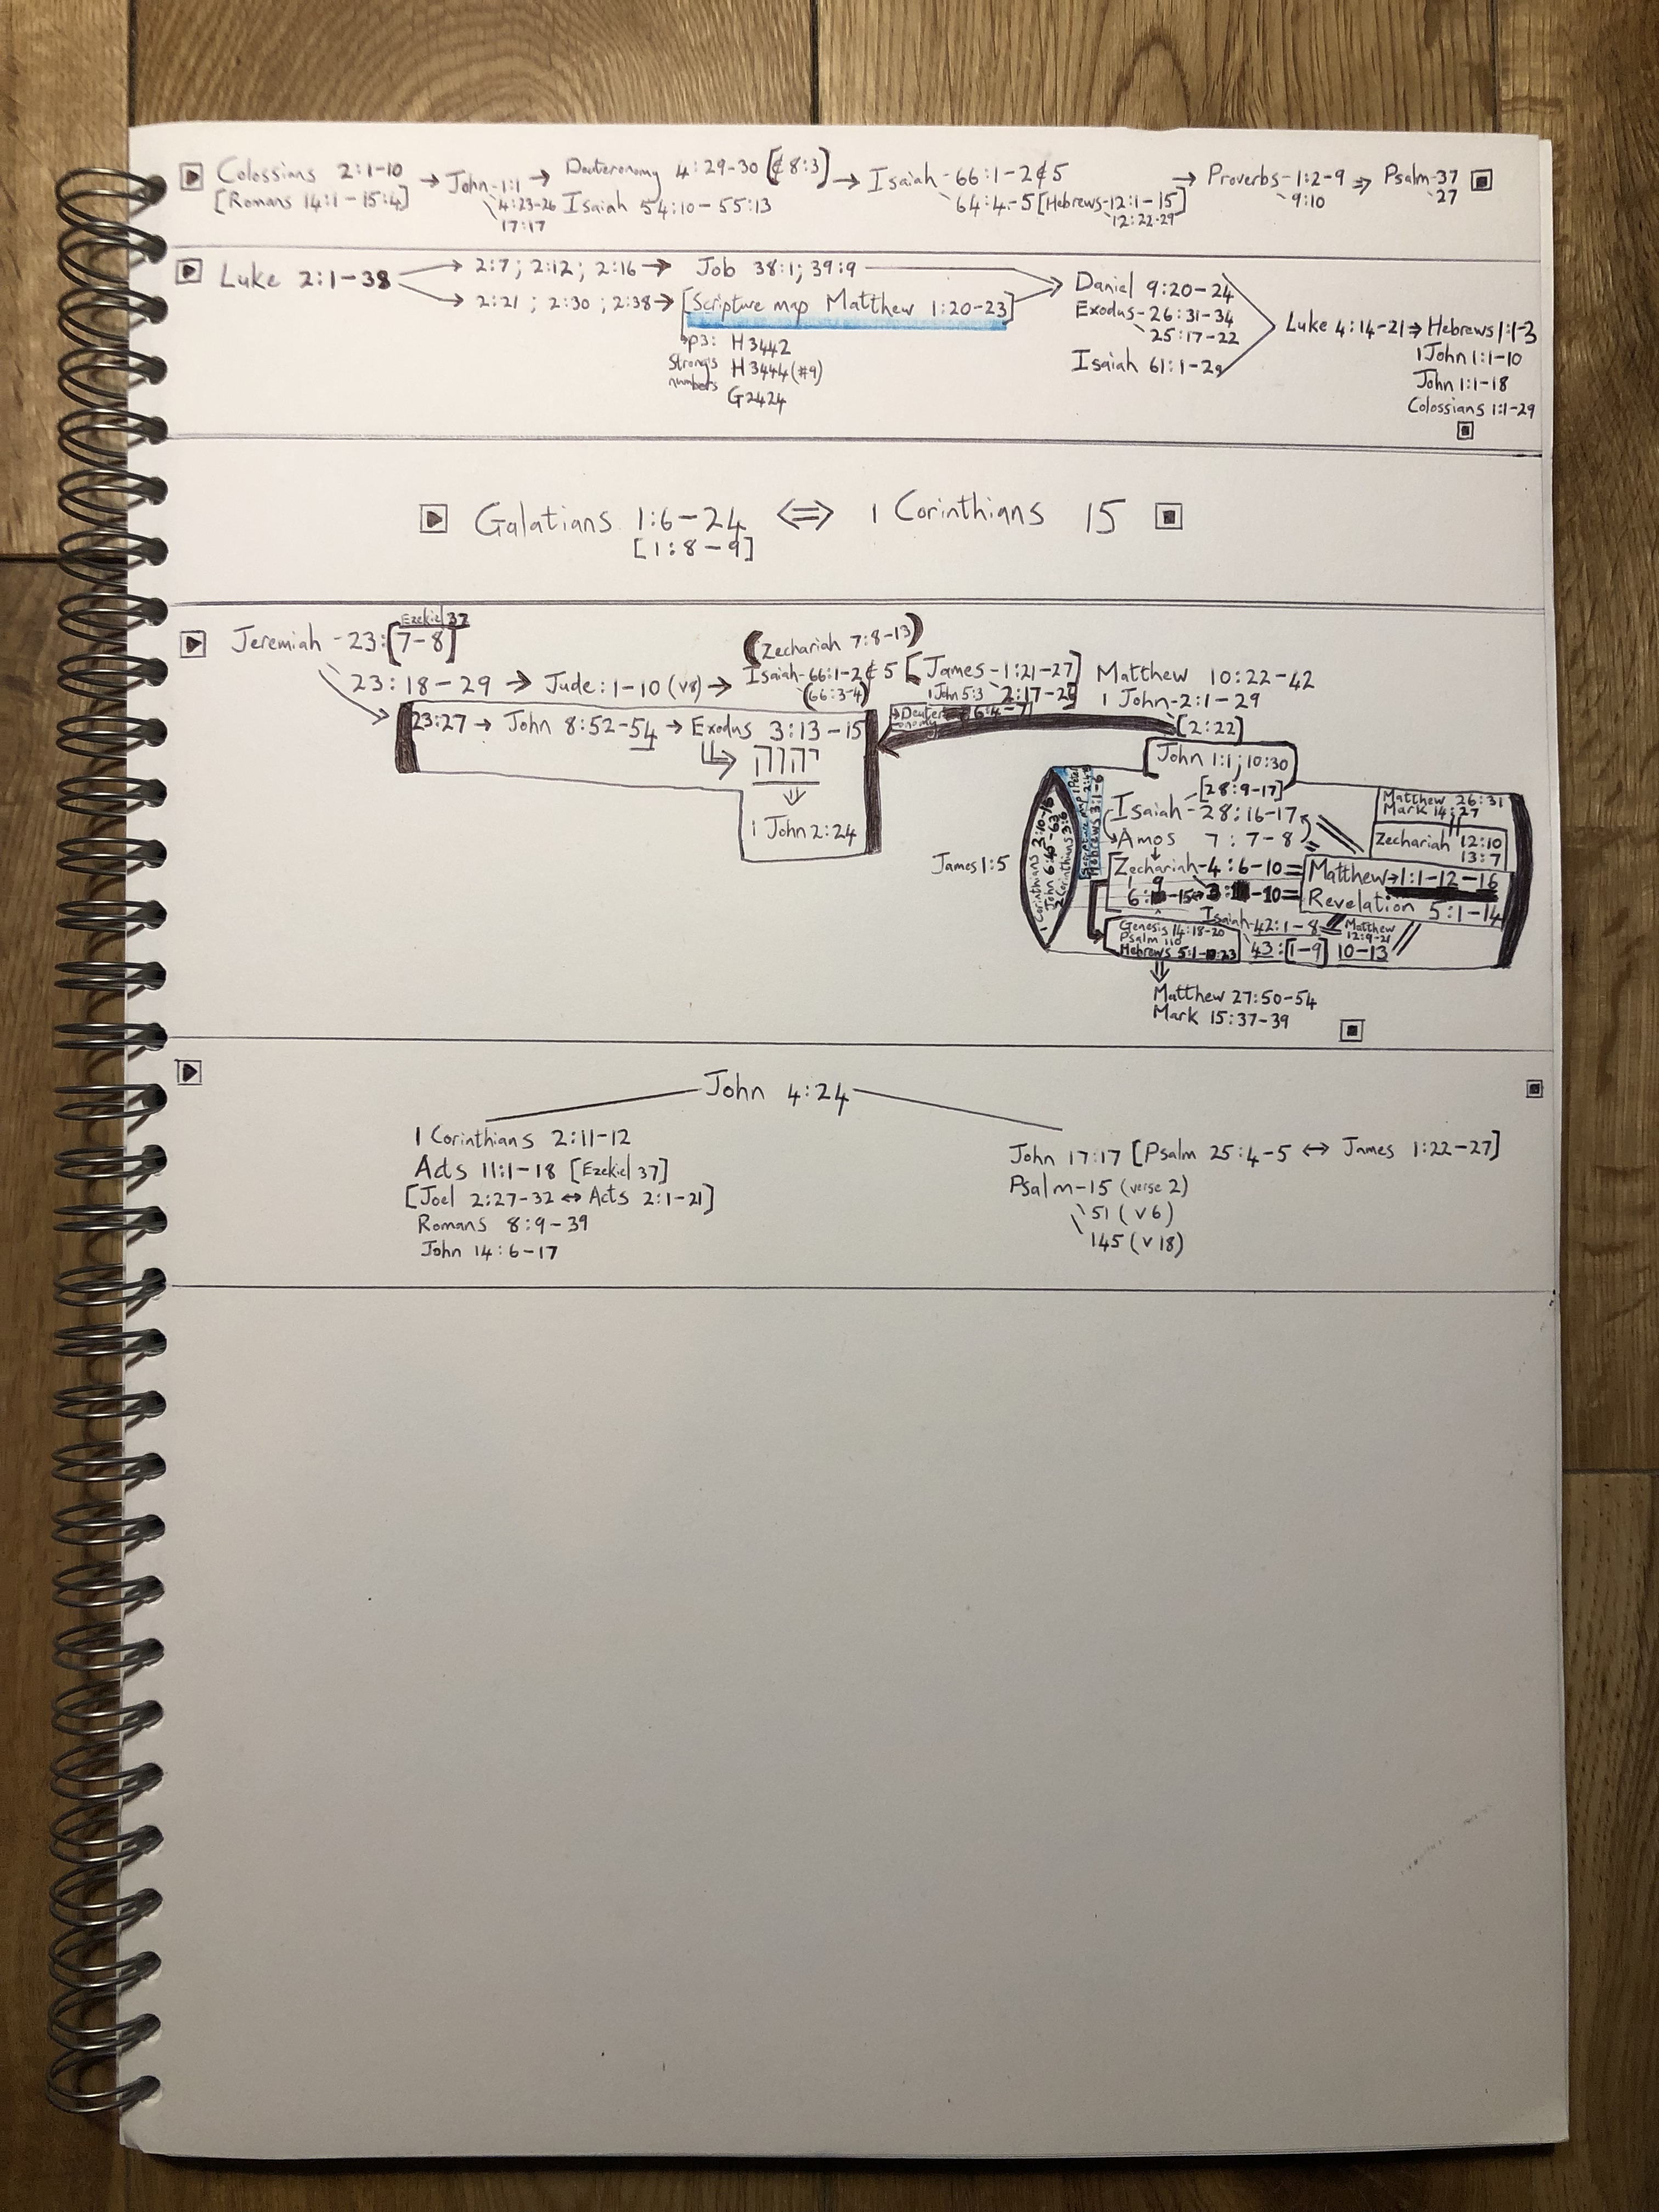 Colossians 2:1-10 → John-1:1 → Deuteronomy 4:29-30 [¢ 8:3] → Isaiah-66:1-2¢5 → Proverbs-1:2-9 ⇒ Psalm-37
[Romans 14:1-15:4] 4:23-26 Isaiah 54:10-55:13 64:4-5 [Hebrews-12:1-15] 9:10 27
17:17 12:22-29
Luke 2:1-38 → 2:7; 2:12; 2:16 → Job 38:1; 39:9
→ 2:21; 2:30; 2:38 → [Scripture map Matthew 1:20-23]
p3: H3442
Strongs numbers
H3444 (#9)
G2424
Daniel 9:20-24
Exodus-26:31-34
25:17-22
Isaiah 61:1-2a
Luke 4:14-21 ⇒ Hebrews 1:1-3
1 John 1:1-10
John 1:1-18
Colossians 1:1-29
Galatians 1:6-24 ⇔ 1 Corinthians 15
[1:8-9]
Ezekiel 37
Jeremiah-23:[7-8]
(Zechariah 7:8-13)
23:18-29 → Jude:1-10 (v8) → Isaiah-66:1-2¢5 [James-1:21-27] Matthew 10:22-42
(66:3-4) 1 John 5:3 1 John-2:1-29
Deuteronomy 6:4-7
[2:22]
23:27 → John 8:52-54 → Exodus 3:13-15
יהוה
1 John 2:24
John 1:1; 10:30
[28:9-17]
Isaiah-28:16-17
Amos 7:7-8
Zechariah-4:6-10 = Matthew→1:1-12-16
Revelation 5:1-14
Matthew 26:31
Mark 14:27
Zechariah 12:10
13:7
James 1:5
1 Corinthians 2:10-16
2 Corinthians 3:6
Hebrews 3:1-6
Isaiah-42:1-8
Matthew 12:9-21
43:[1-9] 10-13
Genesis 14:18-20
Psalm 110
Hebrews 5:1-10:23
Matthew 27:50-54
Mark 15:37-39
John 4:24
1 Corinthians 2:11-12
Acts 11:1-18 [Ezekiel 37]
[Joel 2:27-32 ↔ Acts 2:1-21]
Romans 8:9-39
John 14:6-17
John 17:17 [Psalm 25:4-5 ↔ James 1:22-27]
Psalm-15 (verse 2)
51 (v6)
145 (v18)